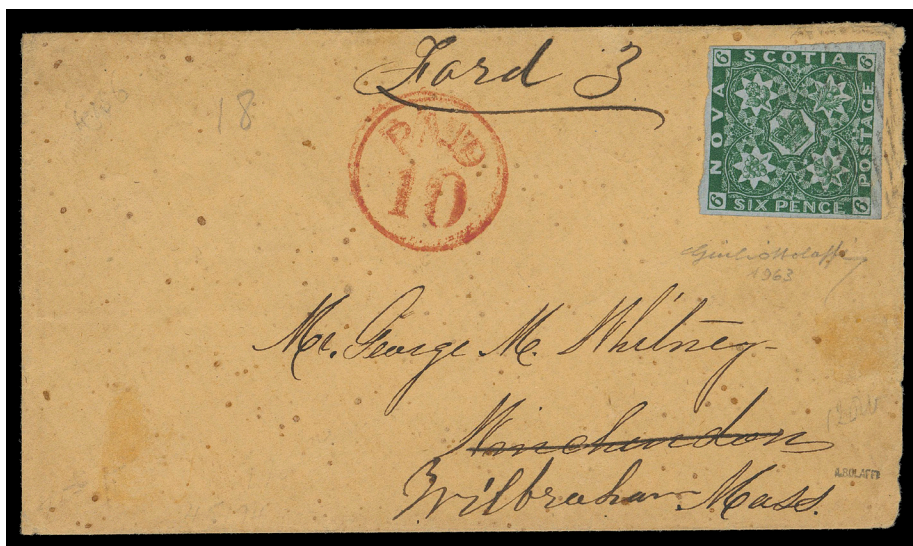 Ford 3
18
PAID
10
6 SCOTIA 6
NOVA
POSTAGE
6 SIX PENCE 6
Giulio Bolaffi
1963
Mr. George M. Whitney
Winchendon
Wilbraham Mass.
A. BOLAFFI